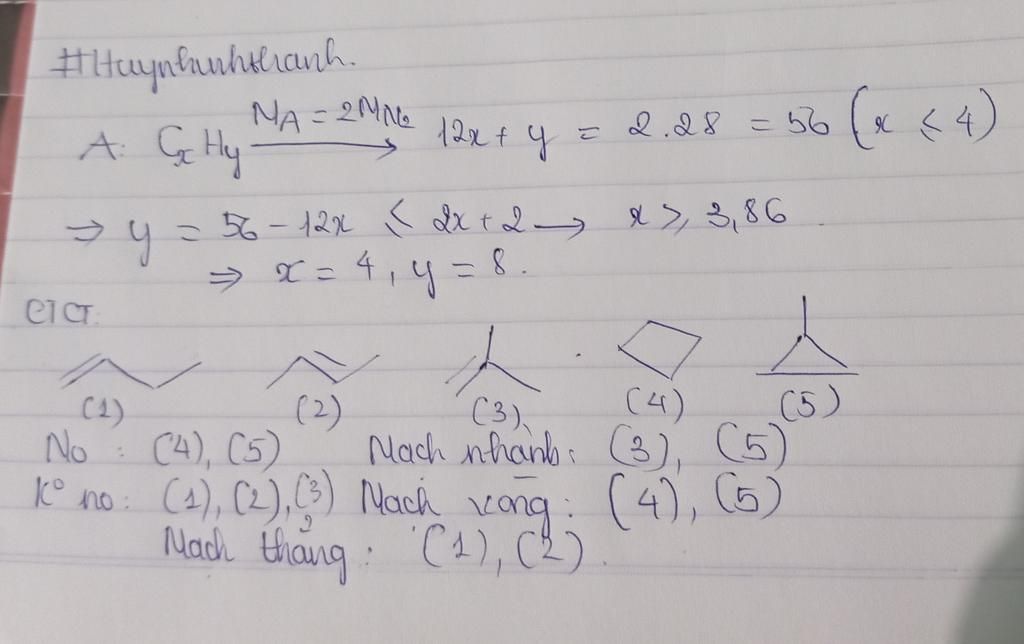 #Huynhunhthanh.
A: CxHy M_A = 2M_N2 → 12x + y = 2.28 = 56 (x ≤ 4)
⇒ y = 56 - 12x ≤ 2x + 2 → x ≥ 3,86
⇒ x = 4, y = 8.
CTCT:
(1) (2) (3) (4) (5)
No : (4), (5) Mạch nhánh: (3), (5)
K° no: (1), (2), (3) Mạch vòng: (4), (5)
Mạch thẳng: (1), (2).